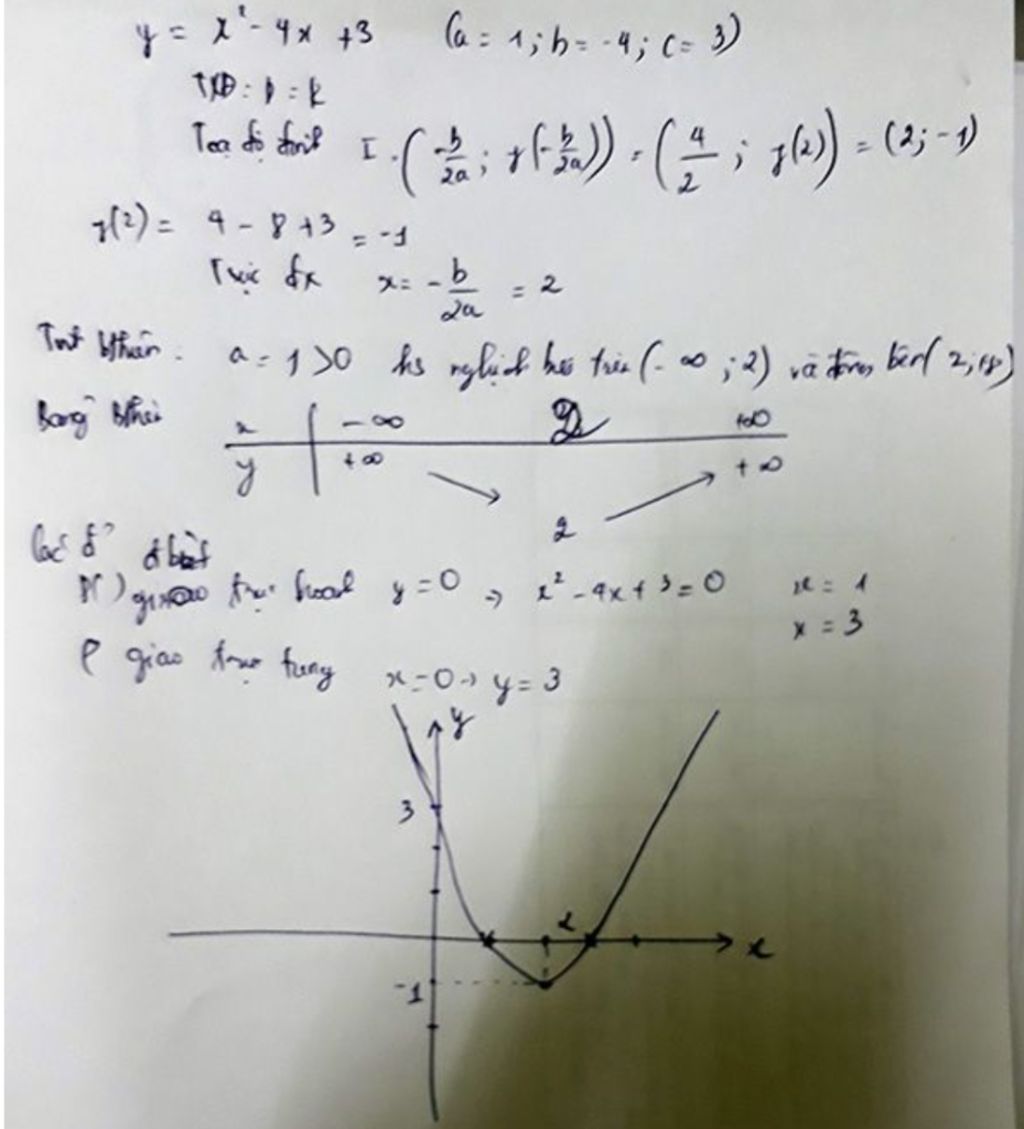 y = x² - 4x + 3 (a = 1; b = -4; c = 3)
TXĐ: D = R
Toạ độ đỉnh I (-b/2a; y(-b/2a)) = (4/2; y(2)) = (2; -1)
y(2) = 4 - 8 + 3 = -1
Trục đx x = -b/2a = 2
a = 1 > 0 hs nghịch biến trên (-∞; 2) và đồng biến (2; +∞)
Bảng bthiên
x -∞ 2 +∞
y +∞ 2 +∞
Các đ' đbiệt
giao trục hoành y = 0 → x² - 4x + 3 = 0 x = 1
x = 3
giao trục tung x = 0 → y = 3
y
3
2
x
-1